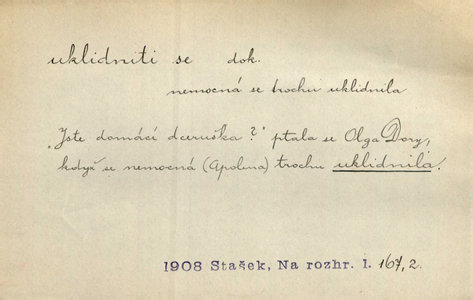 uklidniti se dok.
nemocná se trochu uklidnila
„Jste domácí dceruška?" ptala se Olga Dory,
když se nemocná (Apolena) trochu uklidnila.
1908 Stašek, Na rozhr. I. 167, 2.